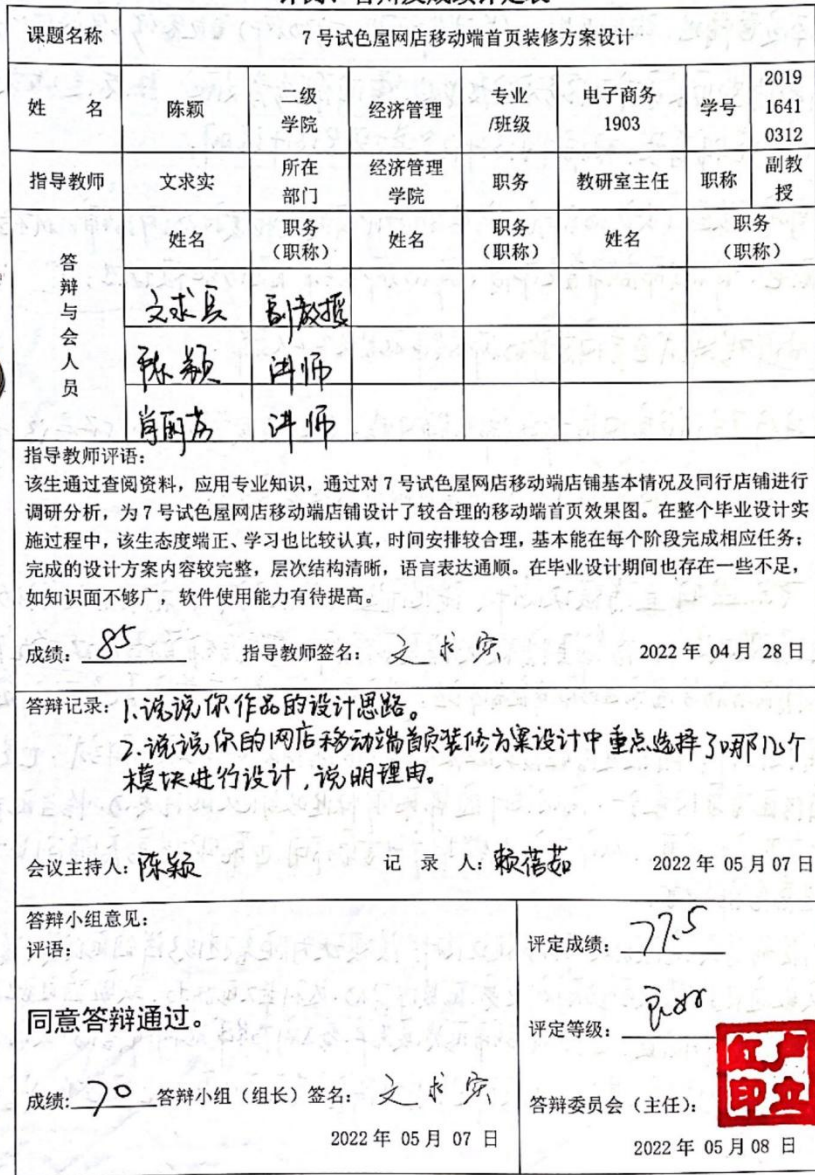 课题名称 7号试色屋网店移动端首页装修方案设计
姓 名 陈颖 二级学院 经济管理 专业/班级 电子商务1903 学号 2019 1641 0312
指导教师 文求实 所在部门 经济管理学院 职务 教研室主任 职称 副教授
答辩与会人员 姓名 职务（职称） 姓名 职务（职称） 姓名 职务（职称）
文求实 副教授
陈颖 讲师
讲师
指导教师评语：
该生通过查阅资料，应用专业知识，通过对7号试色屋网店移动端店铺基本情况及同行店铺进行
调研分析，为7号试色屋网店移动端店铺设计了较合理的移动端首页效果图。在整个毕业设计实
施过程中，该生态度端正、学习也比较认真，时间安排较合理，基本能在每个阶段完成相应任务；
完成的设计方案内容较完整，层次结构清晰，语言表达通顺。在毕业设计期间也存在一些不足，
如知识面不够广，软件使用能力有待提高。
成绩：85 指导教师签名：文求实 2022年04月28日
答辩记录：1.说说你作品的设计思路。
2.说说你的网店移动端首页装修方案设计中重点选择了哪几个
模块进行设计，说明理由。
会议主持人：陈颖 记录人：赖蓓茹 2022年05月07日
答辩小组意见：
评语：
同意答辩通过。
成绩：70 答辩小组（组长）签名：文求实
2022年05月07日
评定成绩：77.5
评定等级：良好
答辩委员会（主任）：
卢立红印
2022年05月08日